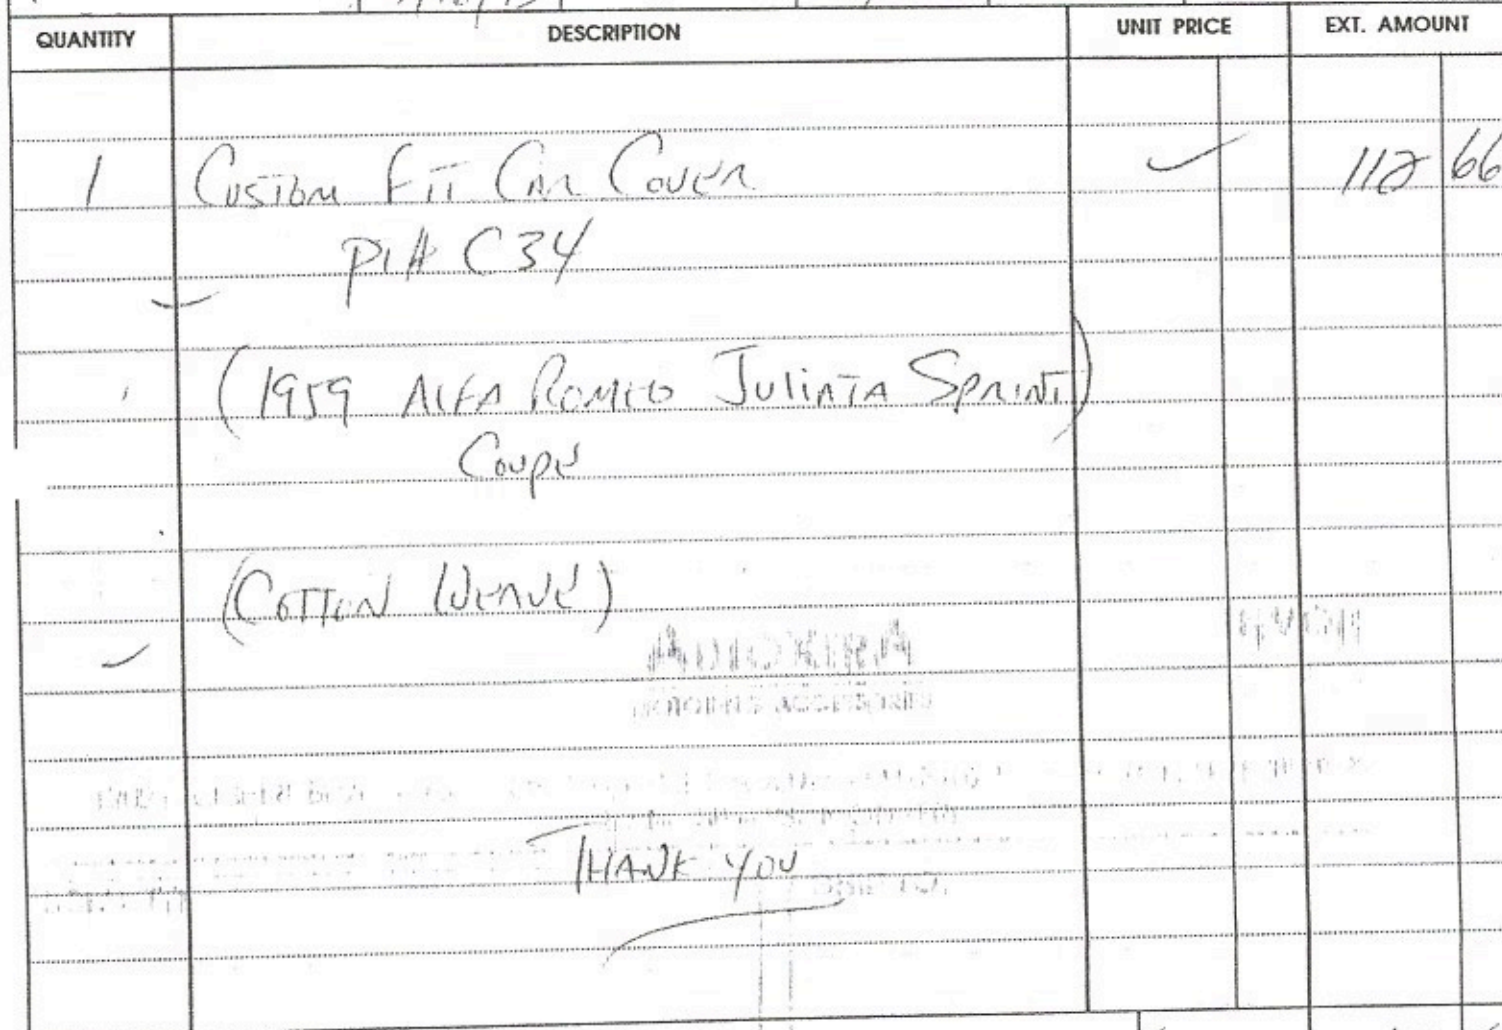 QUANTITY DESCRIPTION UNIT PRICE EXT. AMOUNT
1 Custom Fit Car Cover 112 66
P/# C34
(1959 Alfa Romeo Juliata Sprint)
Coupe
(Cotton Weave)
THANK YOU